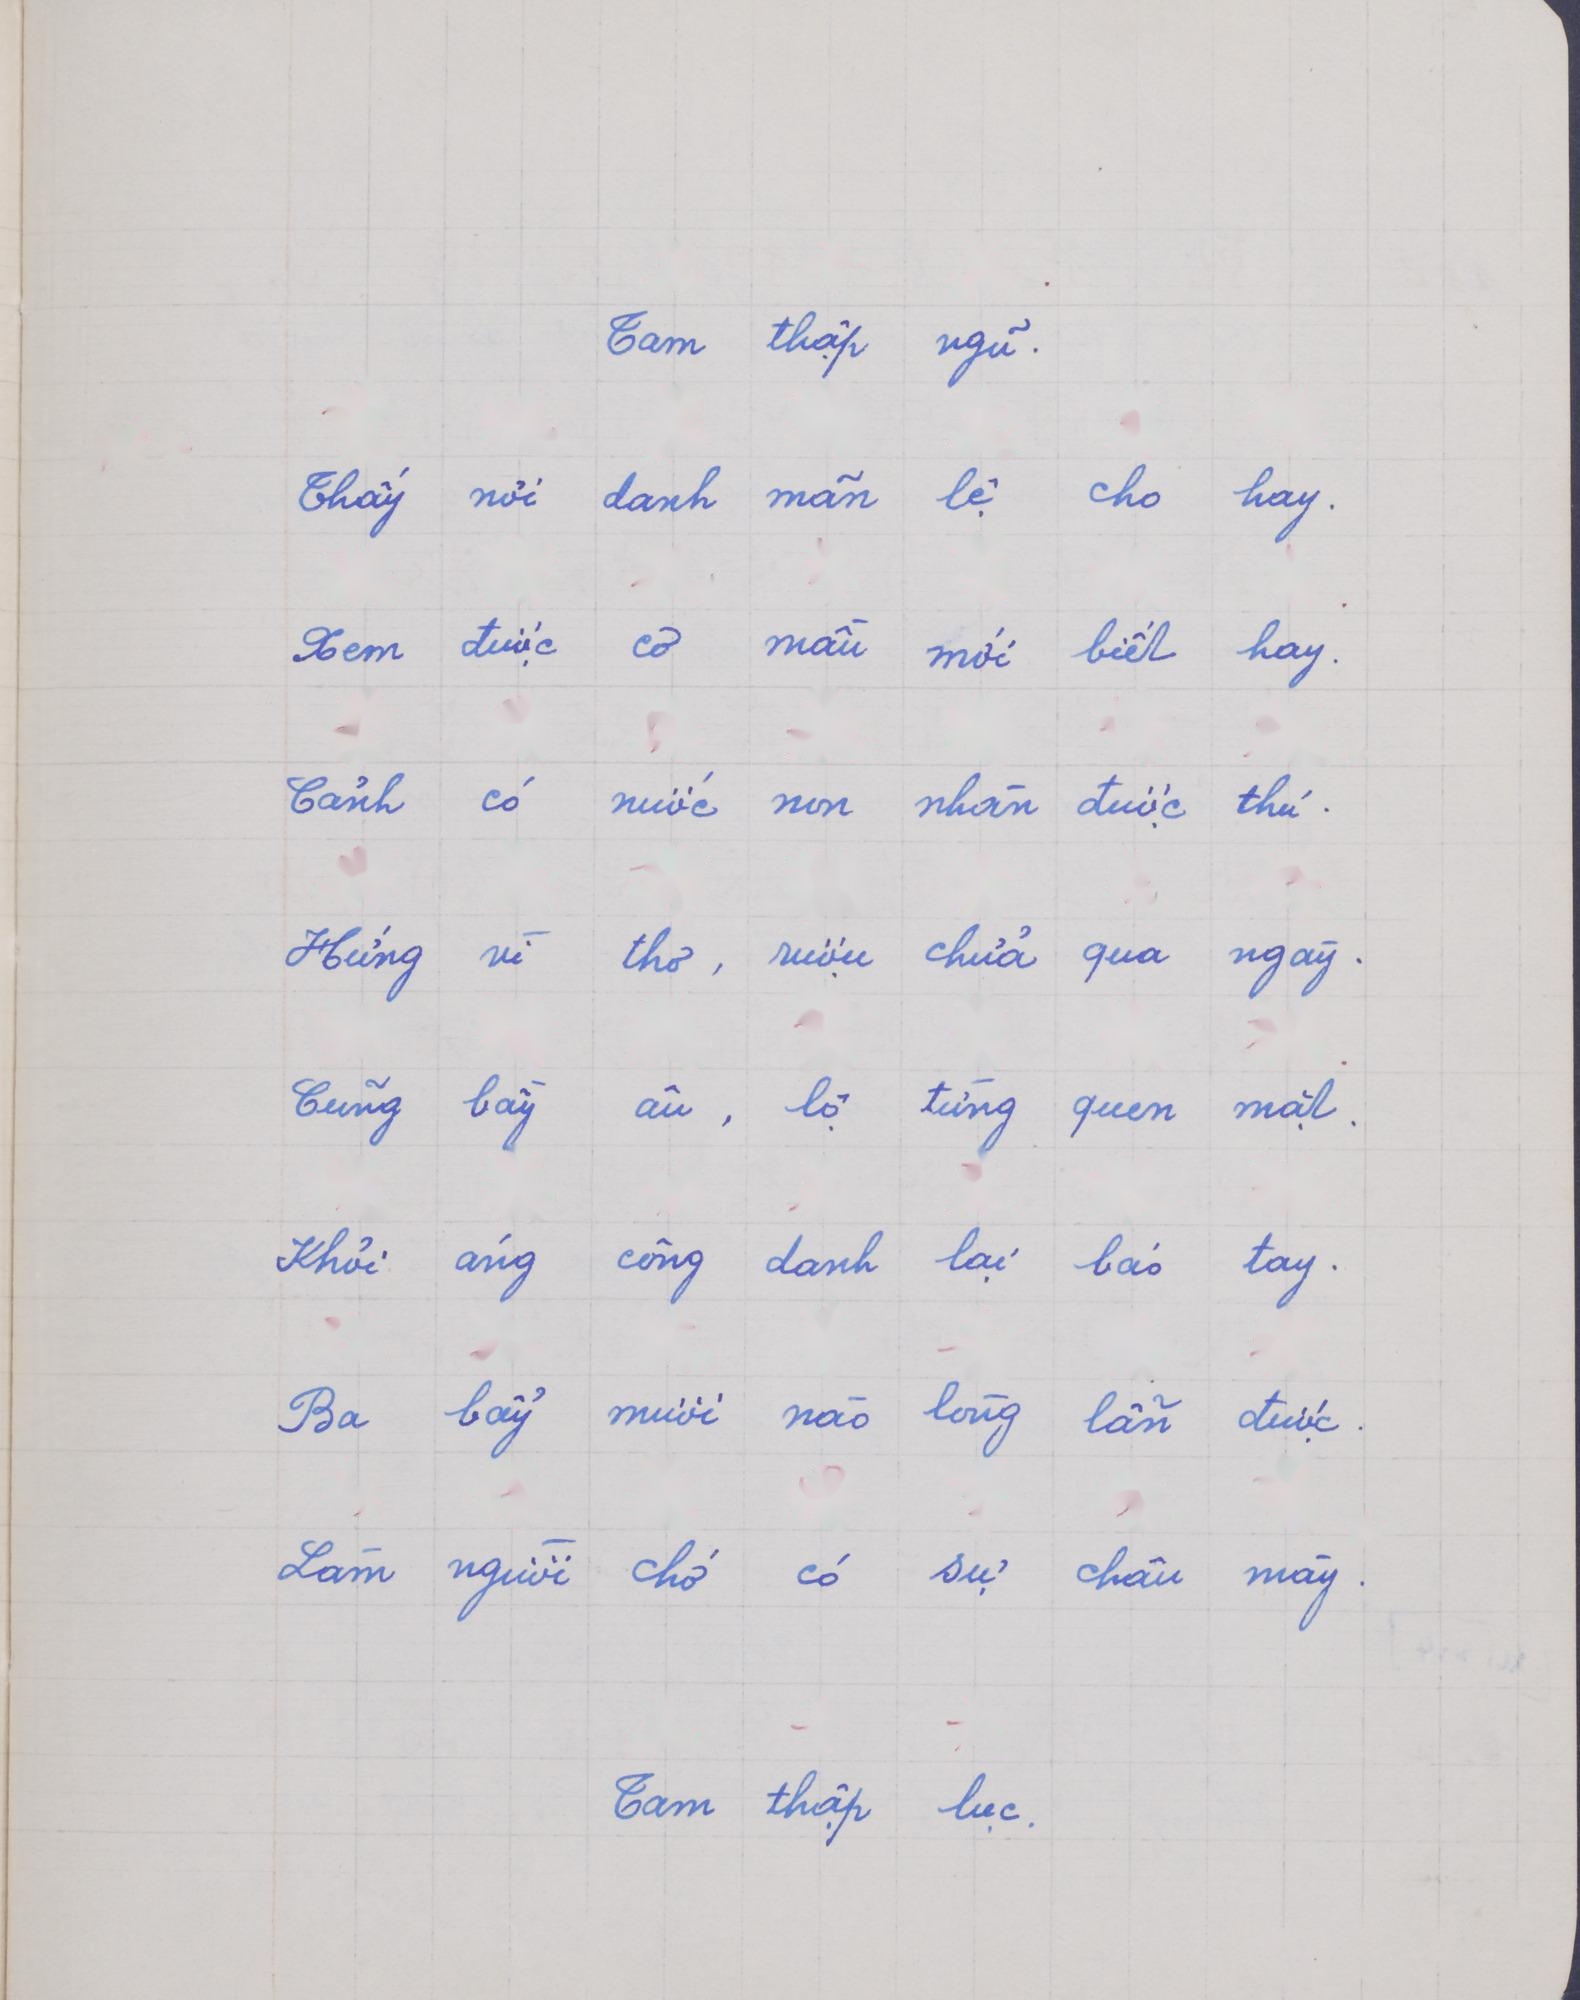 Tam thập ngũ.
Thấy nơi danh mãn lệ cho hay.
Xem được cờ mầu mới biết hay.
Cảnh có nước non nhàn được thú.
Hứng vì thơ, rượu chửa qua ngày.
Cũng bầy âu, lộ từng quen mặt.
Khỏi áng công danh lại báo tay.
Ba bẩy mươi nào lòng lẫn được.
Làm người chớ có sự châu mày.
Tam thập lục.